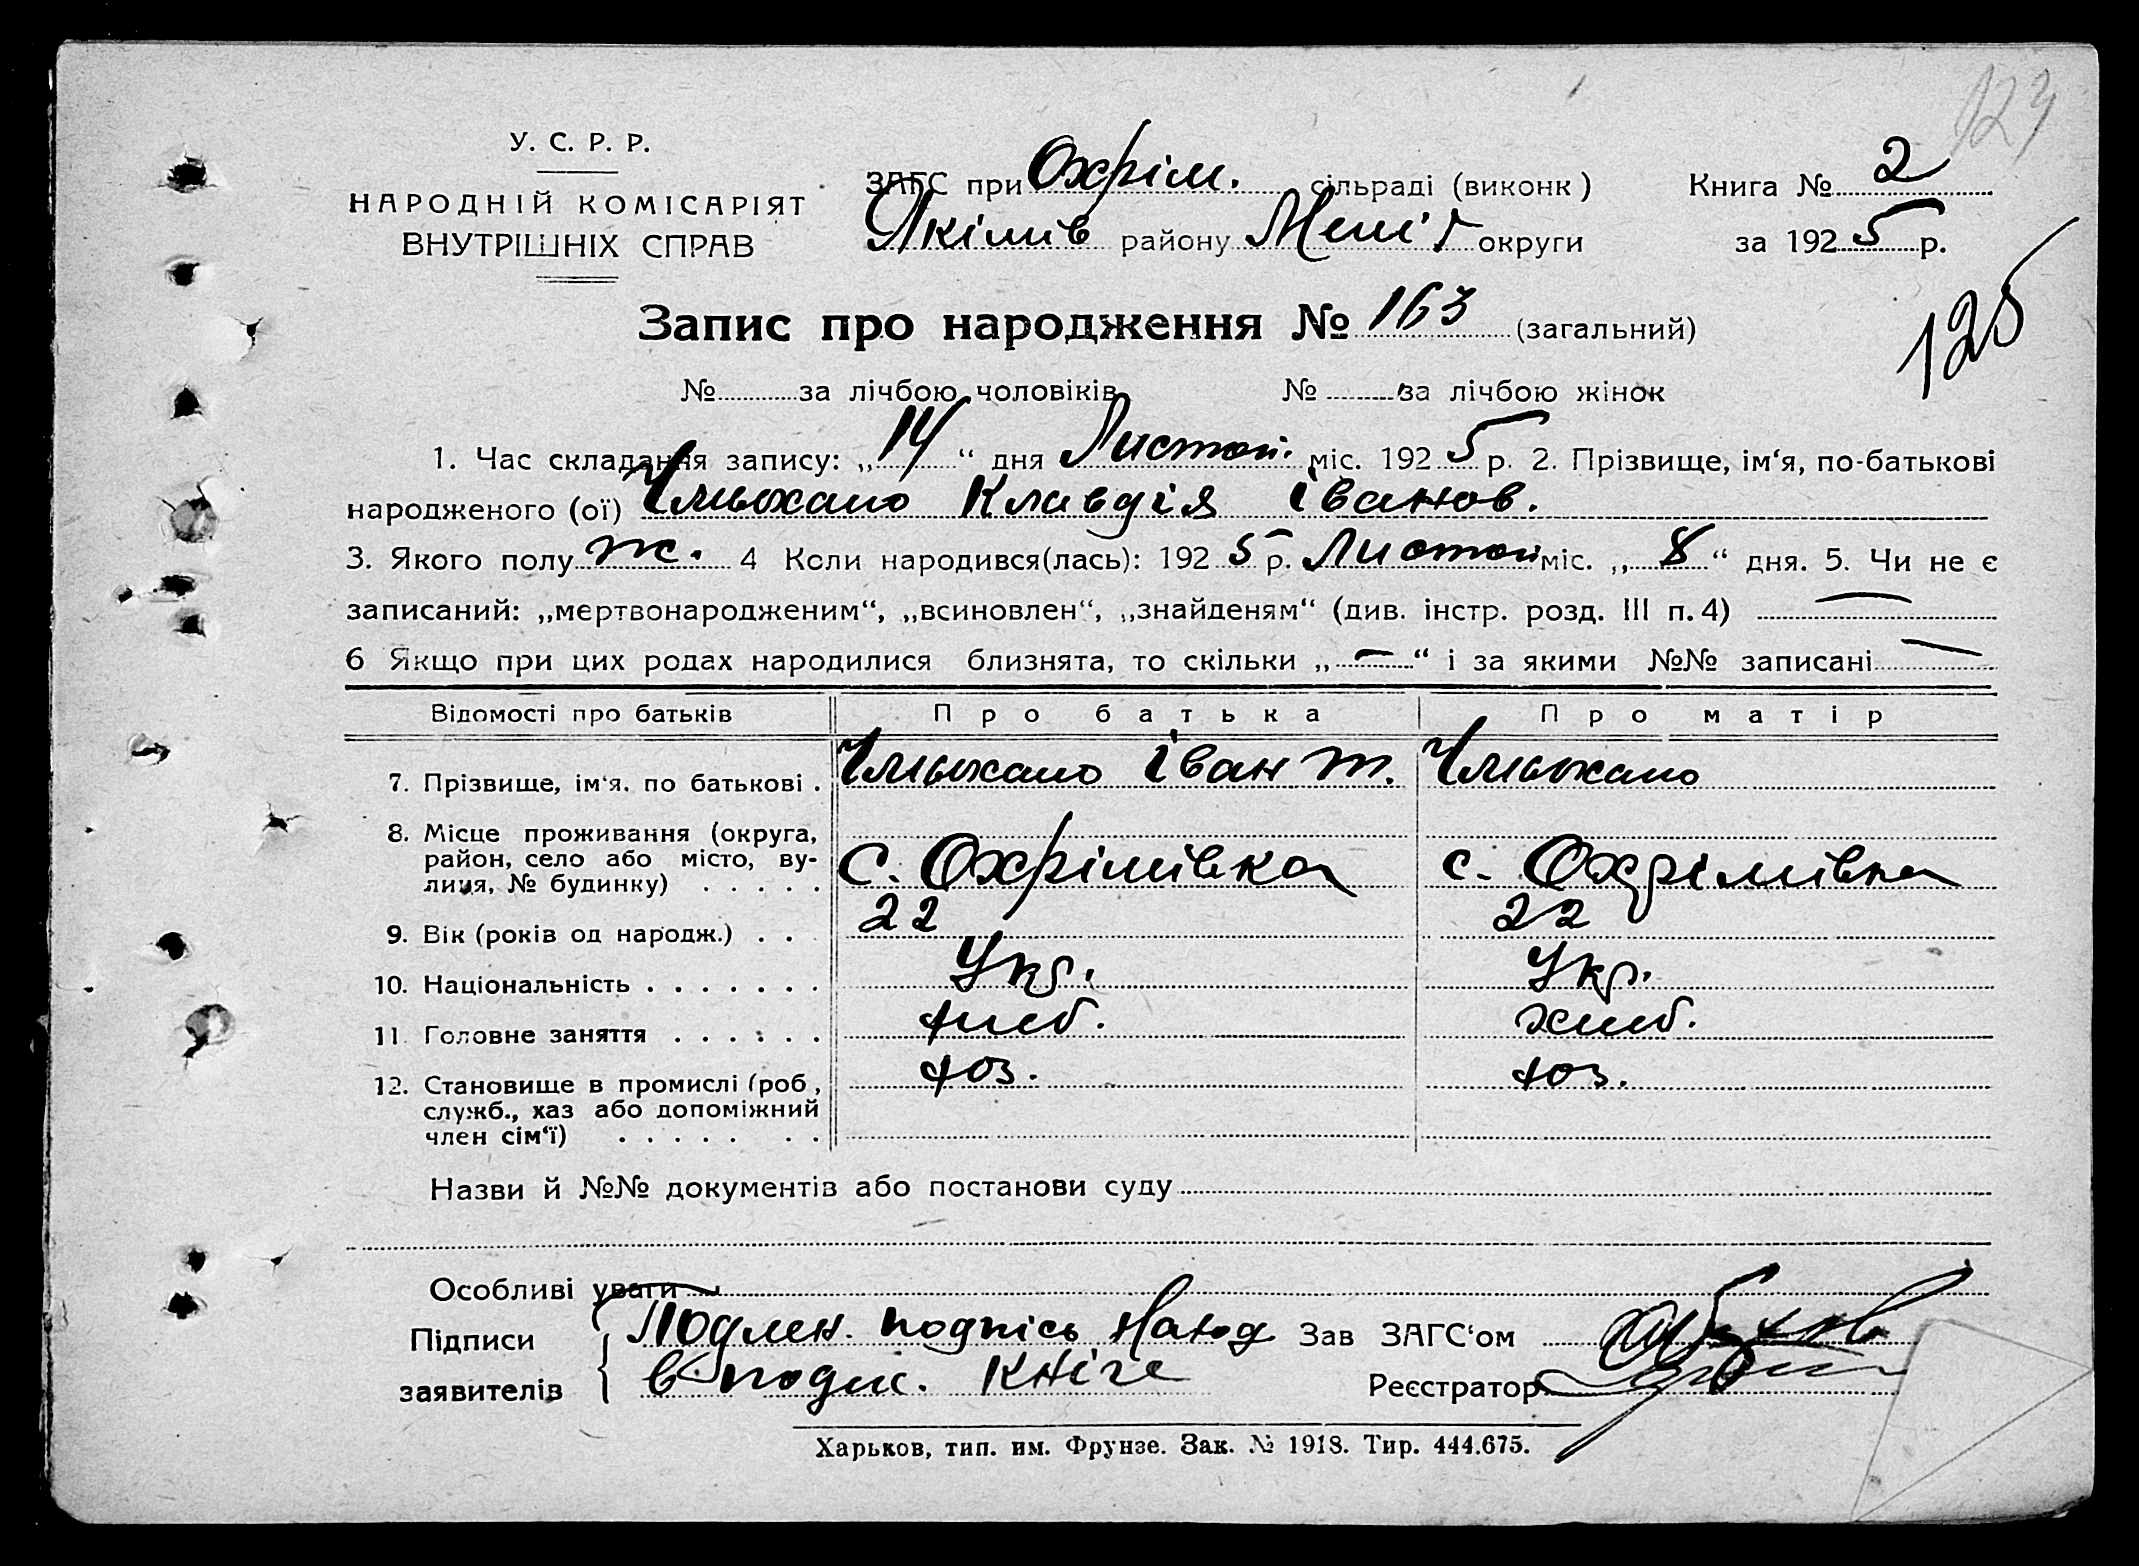 123
У. С. Р. Р.
НАРОДНІЙ КОМІСАРІЯТ
ВНУТРІШНІХ СПРАВ
ЗАГС при Охрім. сільраді (виконк)
Якімів району Меліт округи
Книга № 2
за 1925 р.
125
Запис про народження № 163 (загальний)
№ за лічбою чоловіків № за лічбою жінок
1. Час складання запису: „14“ дня Листоп. міс. 1925 р. 2. Прізвище, ім‘я, по-батькові
народженого (ої) Клавдія Іванов.
3. Якого полу ж. 4 Коли народився(лась): 1925 р. Листоп міс. „8“ дня. 5. Чи не є
записаний: „мертвонародженим“, „всиновлен“, „знайденям“ (див. інстр. розд. III п. 4) —
6 Якщо при цих родах народилися близнята, то скільки „—“ і за якими №№ записані —
Відомості про батьків Про батька Про матір
7. Прізвище, ім‘я. по батькові . Іван Т.
8. Місце проживання (округа, район, село або місто, вулиця, № будинку) . . . . . с. Охрімівка с. Охрімівка
9. Вік (років од народж.) . . 22 22
10. Національність . . . . . . . Укр. Укр.
11. Головне заняття . . . . . . хліб. хліб.
12. Становище в промислі (роб, служб., хаз або допоміжний член сім‘ї) . . . . . . . хоз. хоз.
Назви й №№ документів або постанови суду
Особливі уваги
Підписи заявителів { Подлен. подпісь наход
в подл. кнiге
Зав ЗАГС‘ом
Реєстратор
Харьков, тип. им. Фрунзе. Зак. № 1918. Тир. 444.675.